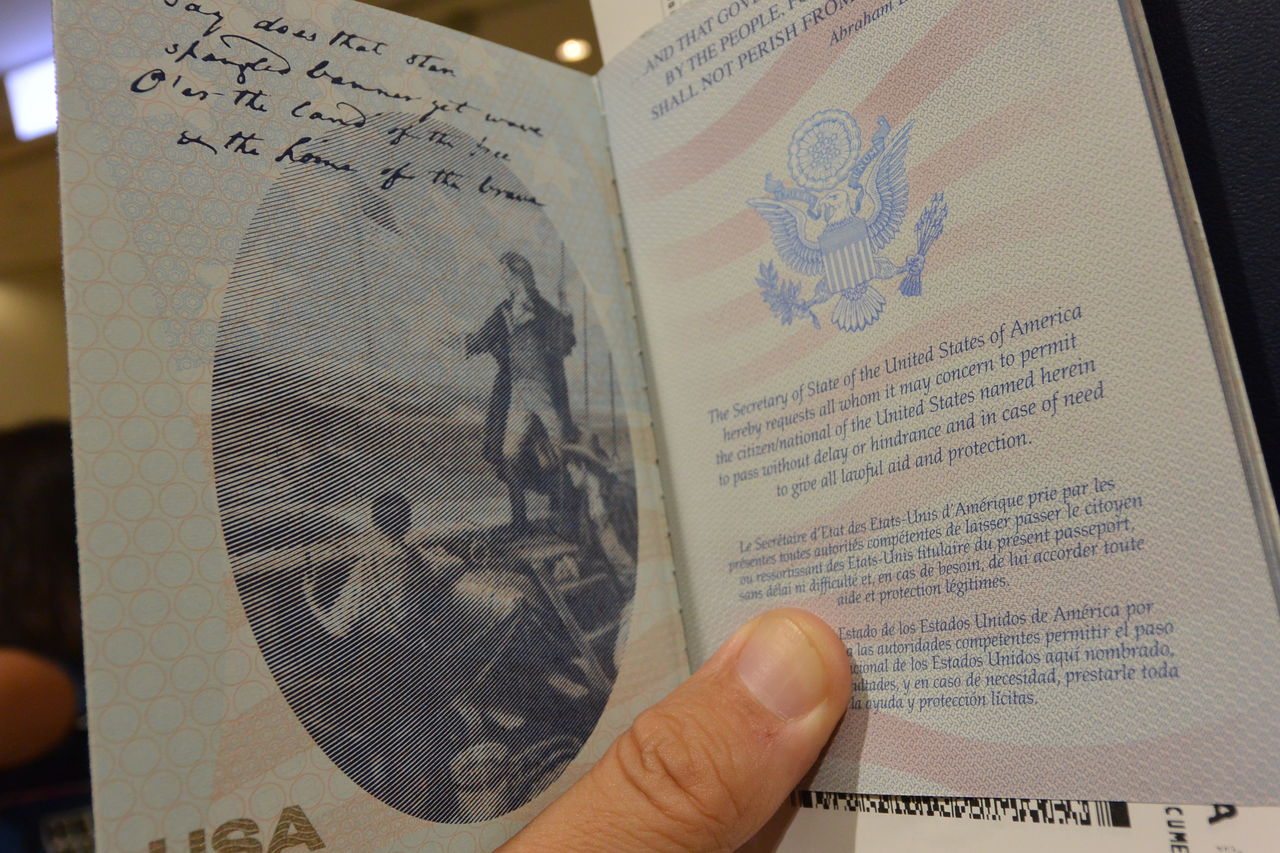 say does that star
spangled banner yet wave
O'er the land of the free
& the home of the brave
USA
AND THAT GOV
BY THE PEOPLE, F
SHALL NOT PERISH FROM
Abraham
The Secretary of State of the United States of America
hereby requests all whom it may concern to permit
the citizen/national of the United States named herein
to pass without delay or hindrance and in case of need
to give all lawful aid and protection.
Le Secrétaire d'Etat des Etats-Unis d'Amérique prie par les
présentes toutes autorités compétentes de laisser passer le citoyen
ou ressortissant des Etats-Unis titulaire du présent passeport,
sans délai ni difficulté et, en cas de besoin, de lui accorder toute
aide et protection légitimes.
Estado de los Estados Unidos de América por
a las autoridades competentes permitir el paso
cional de los Estados Unidos aquí nombrado,
ultades, y en caso de necesidad, prestarle toda
la ayuda y protección lícitas.
A
CUME